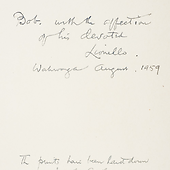 Bob. with the affection
of his devoted
Lionello.
Wahroonga August, 1959
The prints have been handed down